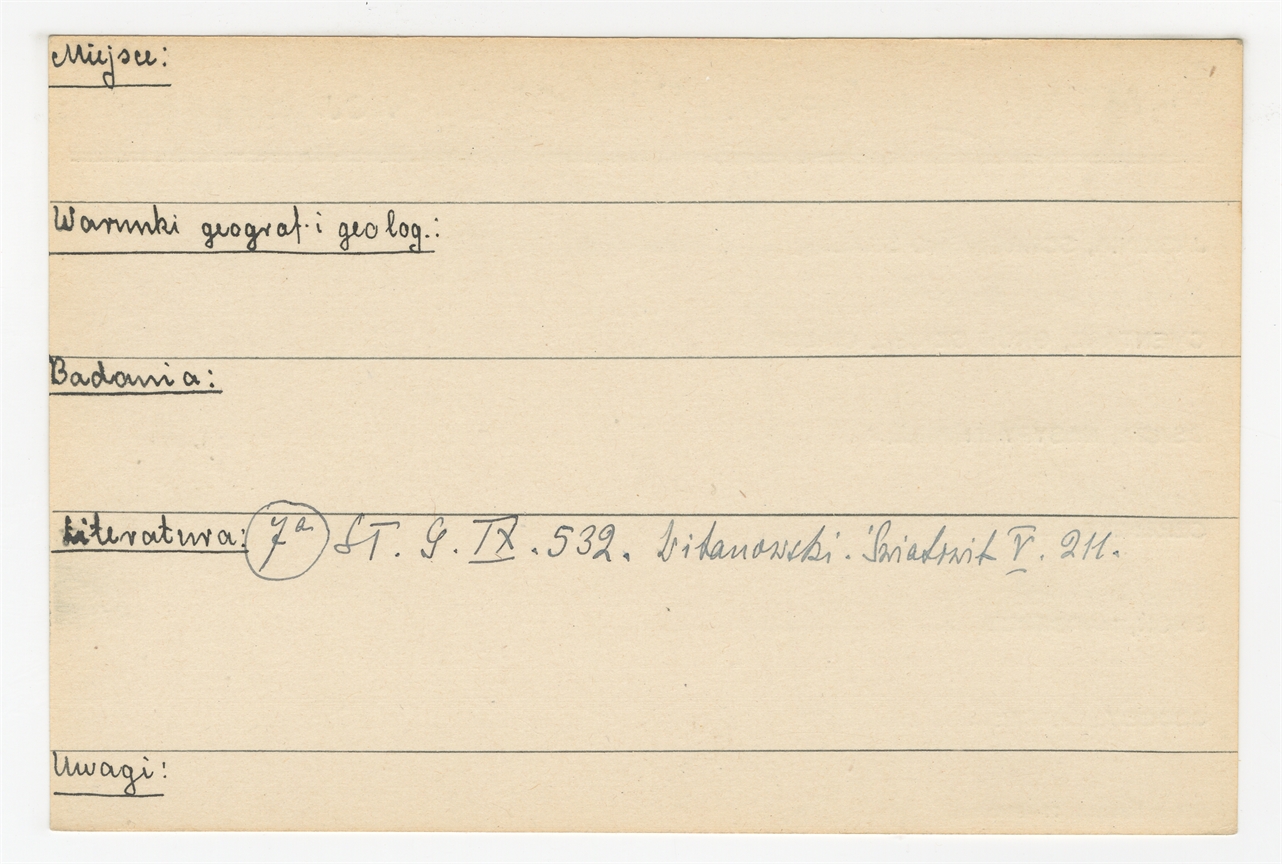 Miejsce:
Warunki geograf. i geolog.:
Badania:
Literatura: 7a ST. G. IX. 532. Witanowski. Światowit V. 211.
Uwagi: